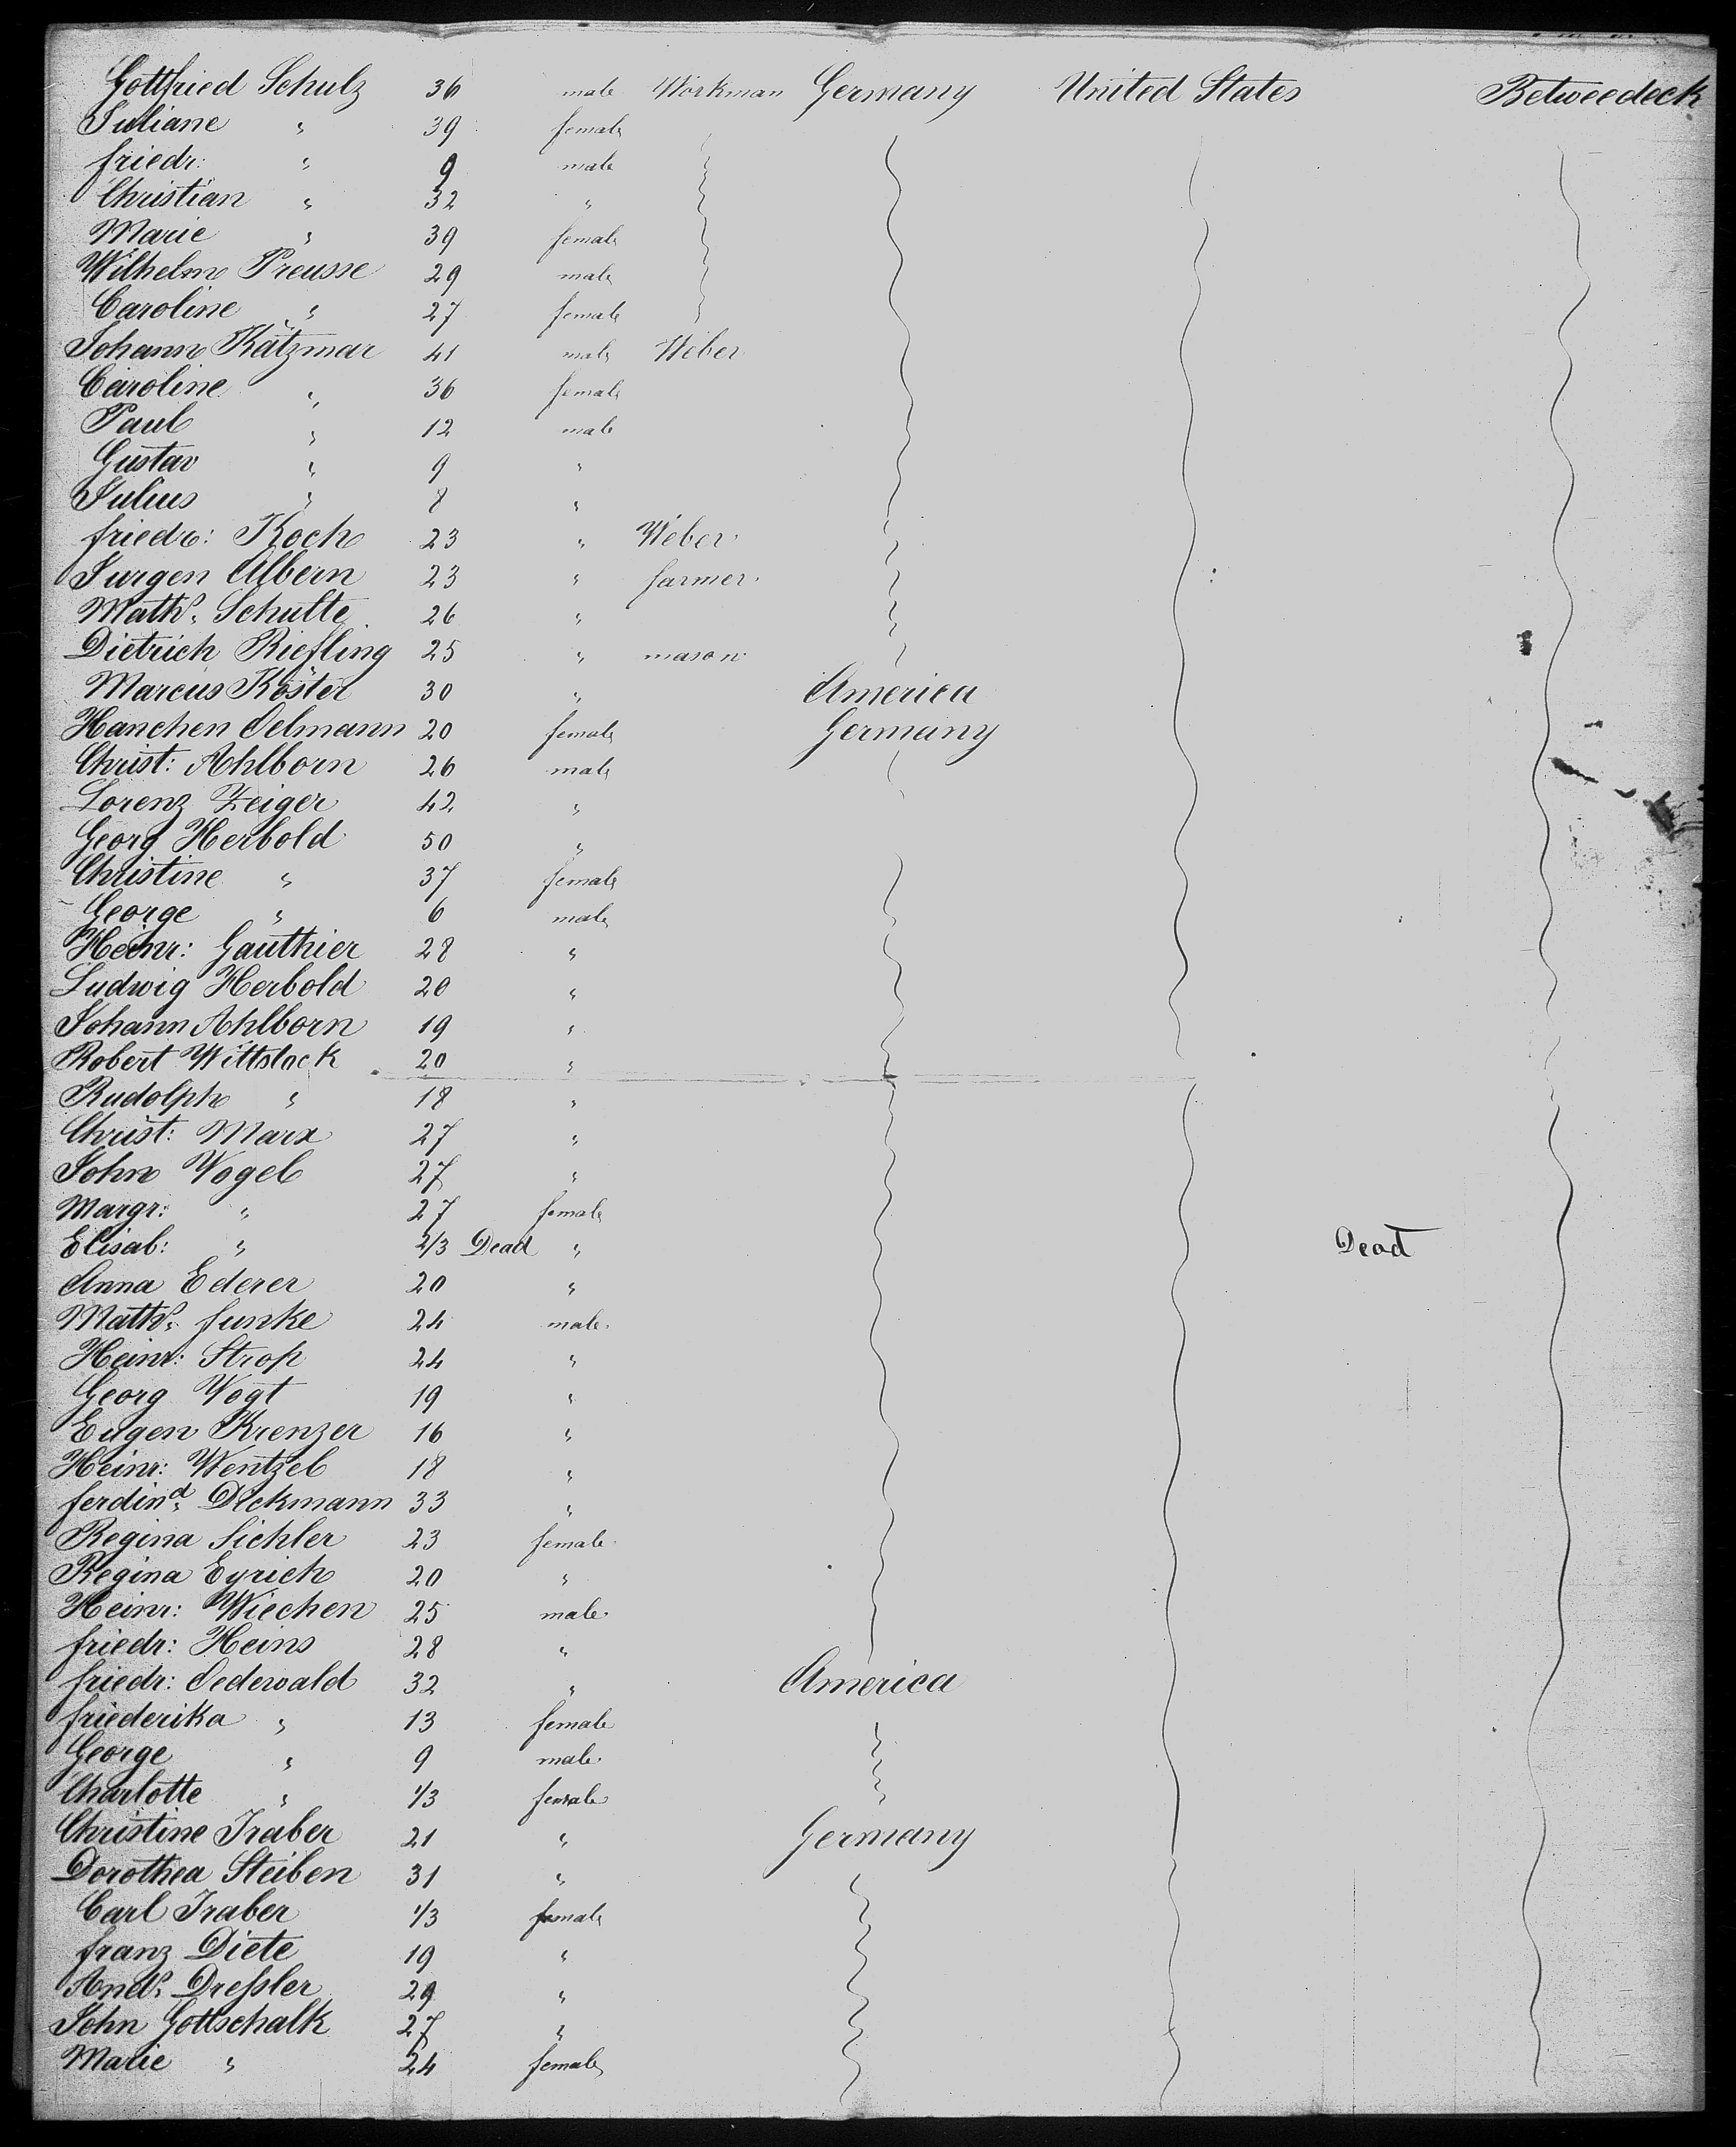 Gottfried Schulz 36 male Workman Germany United States Betweedeck
Juliane " 39 female
friedr: " 9 male
Christian " 32 "
Marie " 39 female
Wilhelm Preusse 29 male
Caroline " 27 female
Johann Kätzmar 41 male Weber
Caroline " 36 female
Paul " 12 male
Gustav " 9 "
Julius " 8 "
friedr: Koch 23 " Weber
Jurgen Albern 23 " farmer
Maths. Schulte 26 "
Dietrich Riefling 25 " mason
Marcus Köster 30 " America
Hanchen Oelmann 20 female Germany
Christ: Ahlborn 26 male
Lorenz Zeiger 42 "
Georg Herbold 50 "
Christine " 37 female
George " 6 male
Heinr: Gauthier 28 "
Ludwig Herbold 20 "
Johann Ahlborn 19 "
Robert Wittstock 20 "
Rudolph " 18 "
Christ: Marx 27 "
John Vogel 27 "
Margr: " 27 female
Elisab: " 2/3 Dead " Dead
Anna Ederer 20 "
Maths. funke 24 male
Heinr: Stroß 24 "
Georg Vogt 19 "
Eugen Krenzer 16 "
Heinr: Wentzel 18 "
ferdind. Dickmann 33 "
Regina Sichler 23 female
Regina Eyrich 20 "
Heinr: Wiechen 25 male
friedr: Heins 28 "
friedr: Oedewald 32 " America
friederika " 13 female
George " 9 male
Charlotte " 1/3 female
Christine Traber 21 " Germany
Dorothea Steiben 31 "
Carl Traber 1/3 female
franz Diete 19 "
Ands. Dreßler 29 "
John Gottschalk 27 "
Marie " 24 female